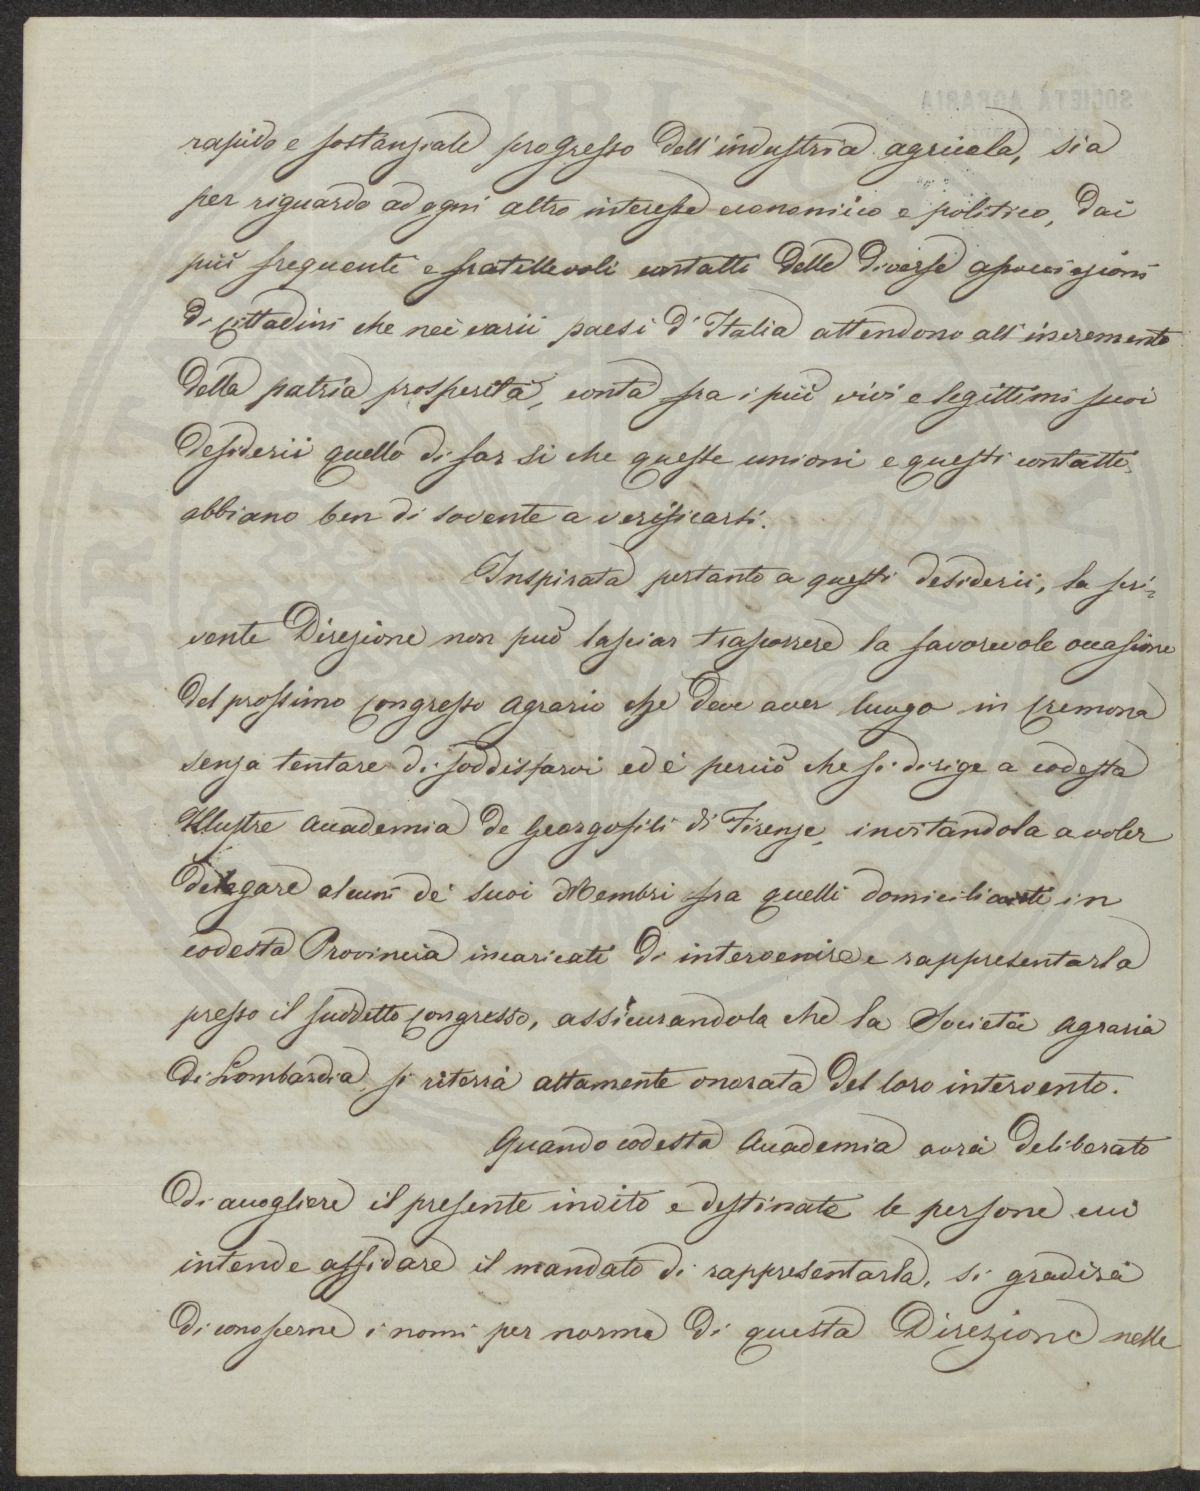 rapido e sostanziale progresso dell'industria agricola, sia
per riguardo ad ogni altro interesse economico e politico, dai
più frequenti e fratellevoli contatti delle diverse associazioni
di cittadini che nei varii paesi d'Italia attendono all'incremento
della patria prosperità, conta fra i più vivi e legittimi suoi
desiderii quello di far sì che queste unioni e questi contatti
abbiano ben di sovente a verificarsi.
Inspirata pertanto a questi desiderii, la scri-
vente Direzione non può lasciar trascorrere la favorevole occasione
del prossimo Congresso Agrario che deve aver luogo in Cremona
senza tentare di soddisfarvi ed è perciò che si dirige a codesta
Illustre Accademia de Georgofili di Firenze, invitandola a voler
delegare alcuni de' suoi Membri fra quelli domiciliati in
codesta Provincia incaricati di intervenire e rappresentarla
presso il suddetto Congresso, assicurandola che la Società Agraria
di Lombardia si riterrà altamente onorata del loro intervento.
Quando codesta Accademia avrà deliberato
di accogliere il presente invito e destinate le persone cui
intende affidare il mandato di rappresentarla, si gradirà
di conoscerne i nomi per norma di questa Direzione nelle